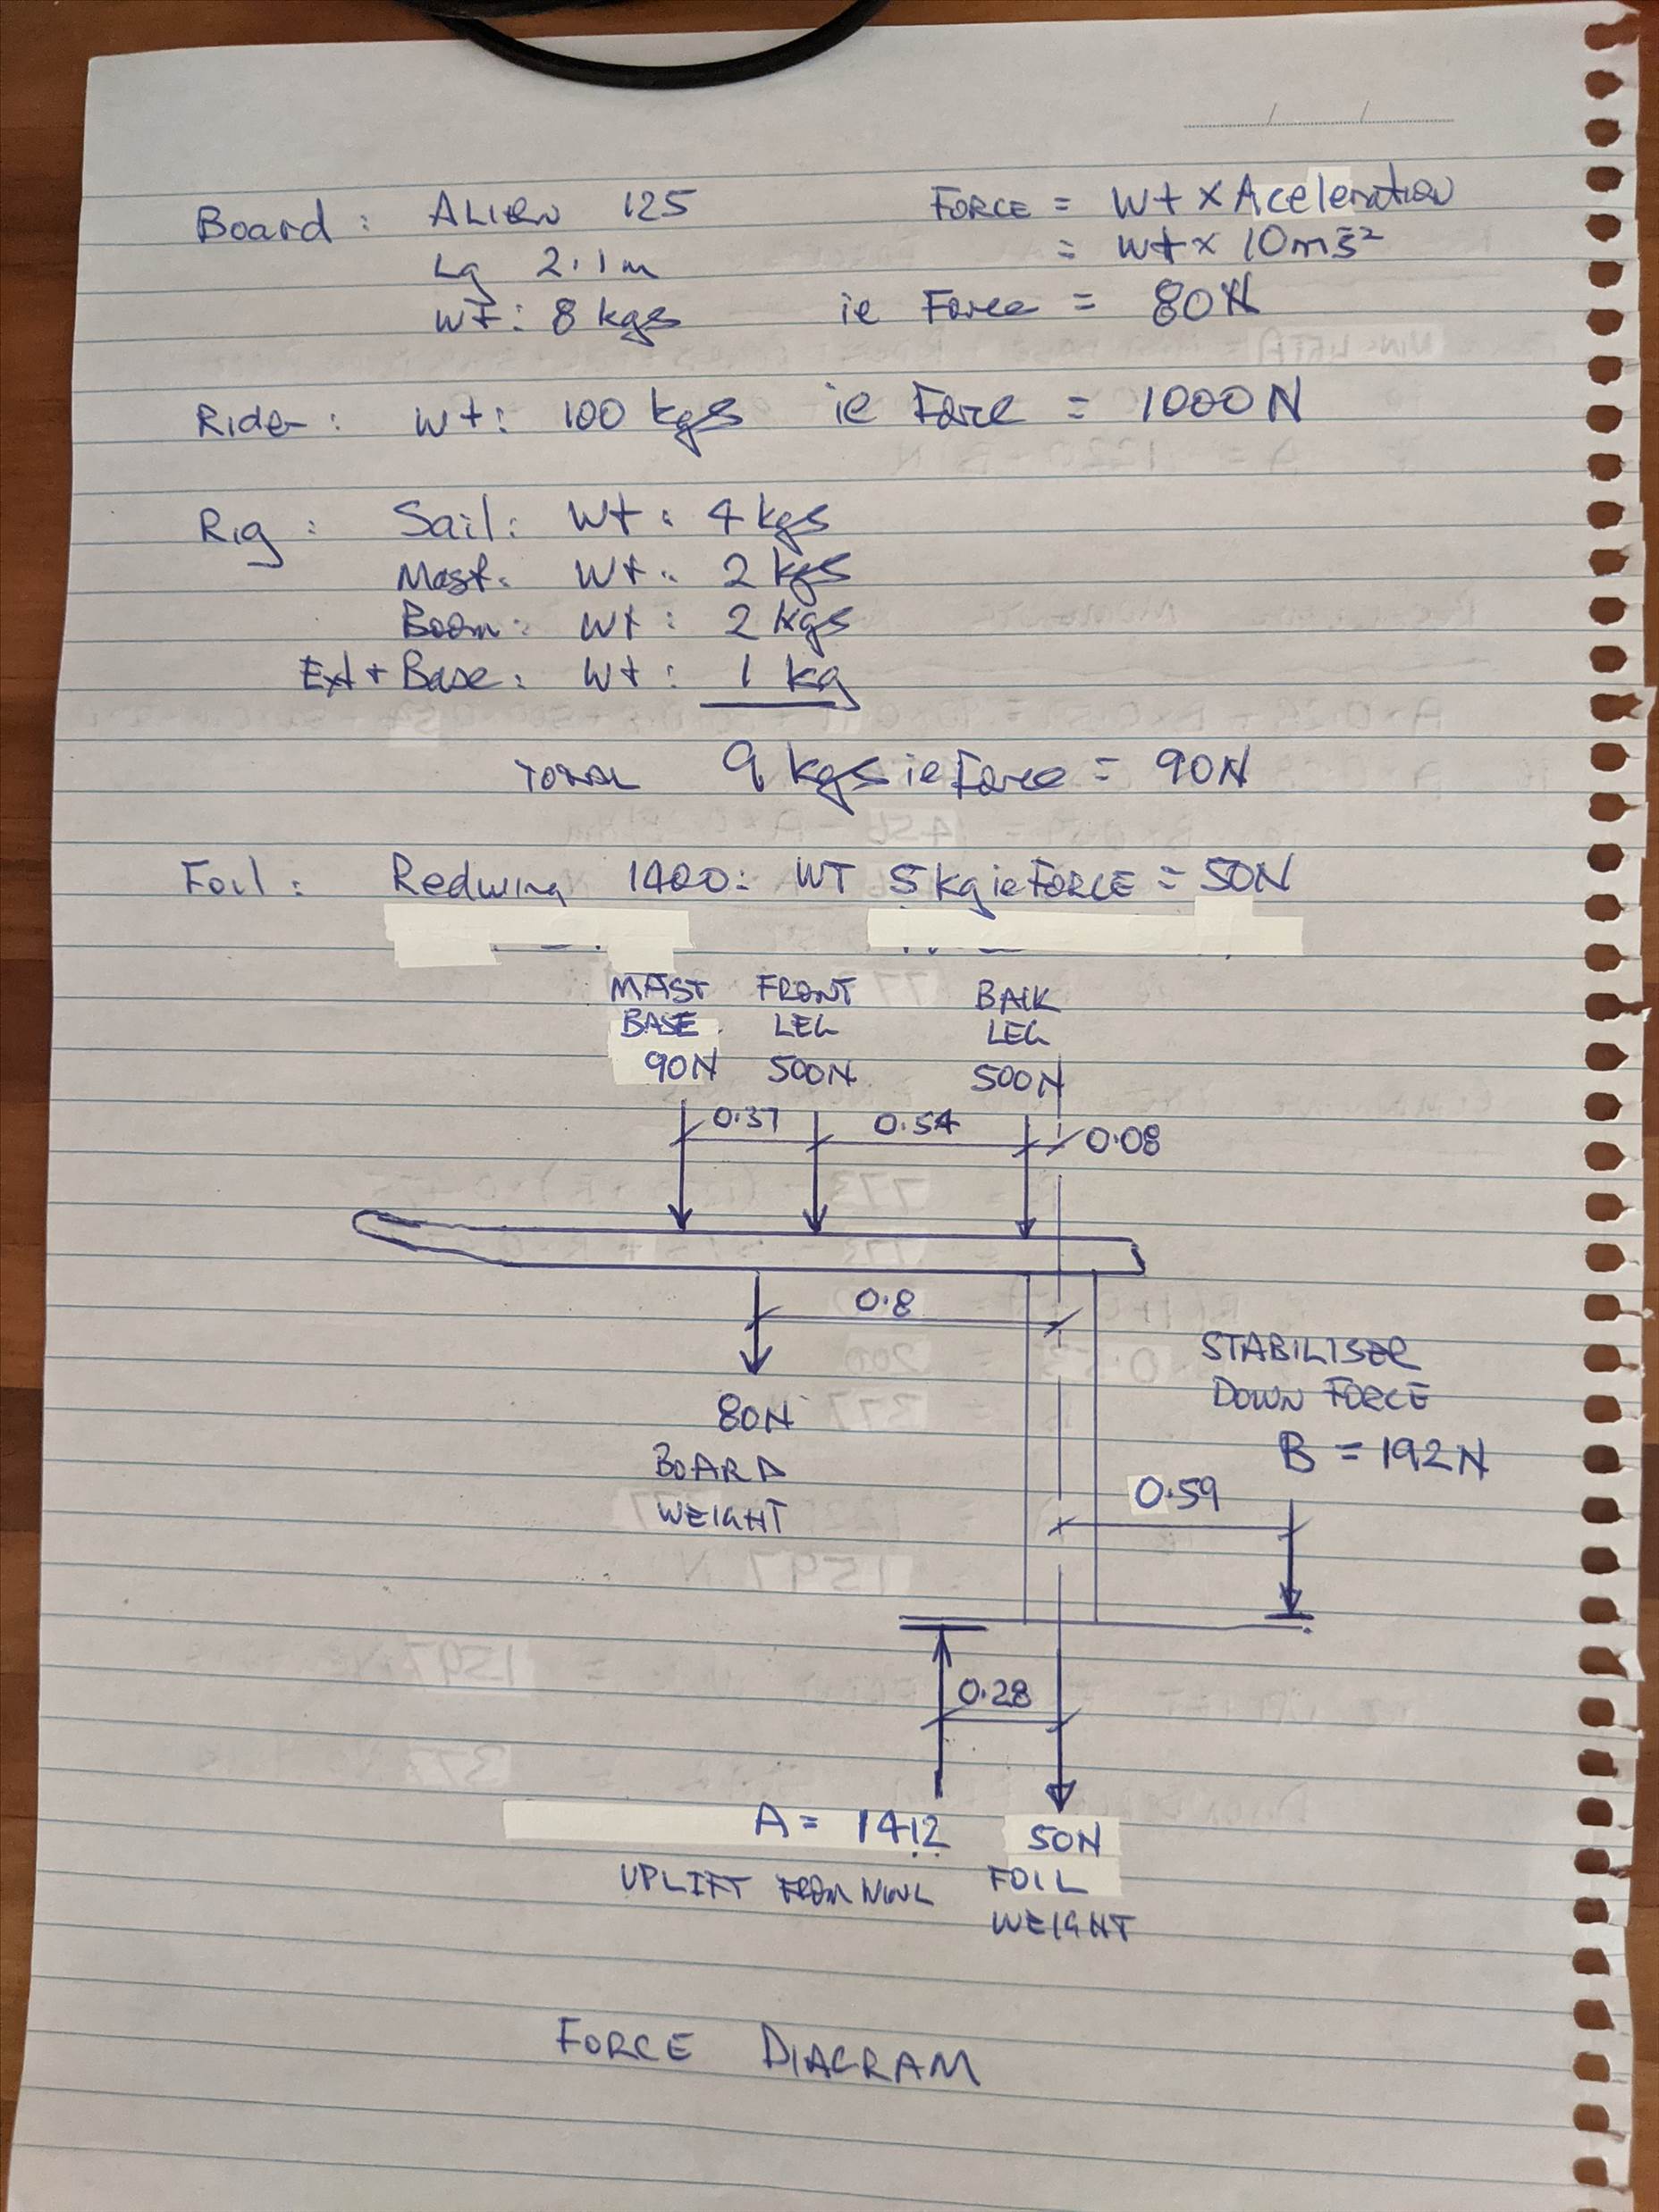 Board: ALIEN 125 FORCE = Wt x Aceleration
Lg 2.1m = Wt x 10ms⁻²
WT: 8 kgs ie Force = 80N
Rider: Wt: 100 kgs ie Force = 1000N
Rig: Sail: Wt: 4 kgs
Mast: Wt: 2 kgs
Boom: Wt: 2 kgs
Ext + Base: Wt: 1 kg
TOTAL 9 kgs ie Force = 90N
Foil: Redwing 1400: WT 5 kg ie FORCE = 50N
MAST FRONT BACK
BASE LEG LEG
90N 500N 500N
0.37 0.54 0.08
0.8
80N
BOARD
WEIGHT
STABILISER
DOWN FORCE
B = 192N
0.59
0.28
A = 1412 50N
UPLIFT FROM WING FOIL
WEIGHT
FORCE DIAGRAM